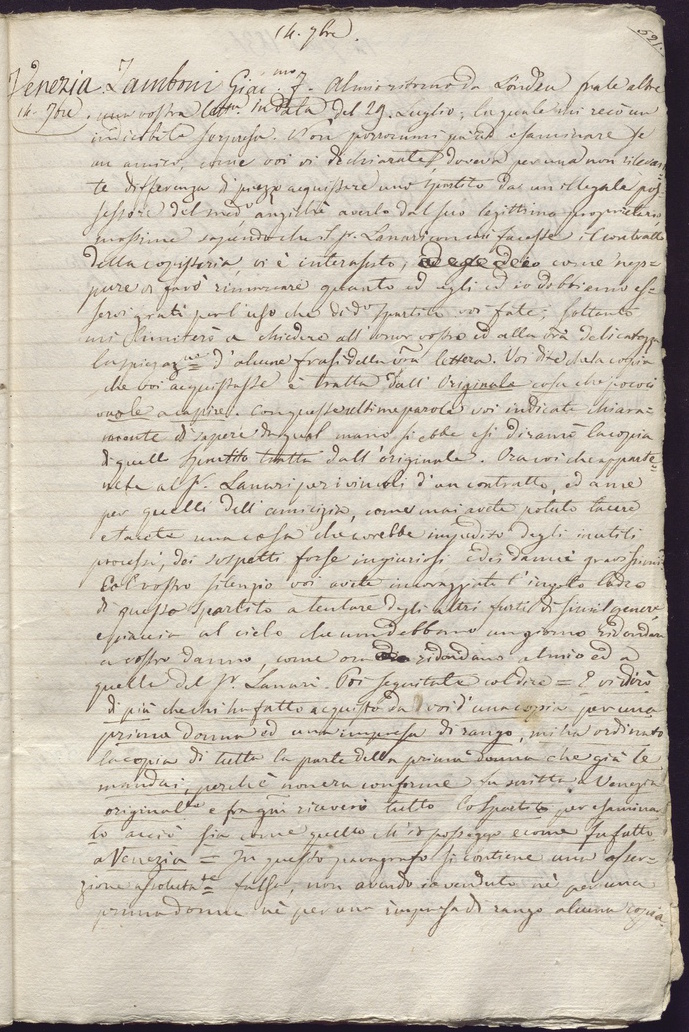 14. 7bre.
59.
Venezia. Zamboni Giac.mo J. Al mio ritorno da Londra fra le altre
14. 7bre. una vostra lettra in data del 29. Luglio, la quale mi recò un
indicibile sorpresa. Non posso mai esaminare se
un amico, come voi vi dichiarate, doveva per una non rilevan=
te differenza di prezzo acquistare uno spartito da un illegale pos=
sessore del medo anzichè averlo dal suo legittimo proprietario,
massime sapendo che il Sr. Lanari con cui faceste il contratto
della copisteria, vi è interessato, come nep=
pure vi farò rimarcare quanto ed egli ed io dobbiamo es=
servi grati per l'uso che di do spartito voi fate; soltanto
mi limiterò a chiedere all'onor vostro ed alla vra delicatezza
la spiegazne d'alcune frasi della vra lettera. Voi dite che la copia
che voi acquistaste è tratta dall'Originale cosa che poco ci
vuole a capire. Con queste ultime parole voi indicate chiara=
mente di sapere da qual mano si ebbe e si diramò la copia
di quello spartito tratta dall'originale. Ora voi che apparte=
nete al Sr. Lanari per i vincoli d'un contratto, ed a me
per quelli dell'amicizia, come mai avete potuto tacere
e tacete una cosa che avrebbe impedito degli inutili
processi, dei sospetti forse ingiuriosi e dei danni gravissimi
Col vostro silenzio voi avete incoraggiato l'ingoto ladro
di questo spartito a tentare degli altri furti di simil genere
e piaccia al cielo che non debbano un giorno ridondare
a vostro danno, come ora ridondano al mio ed a
quello del Sr. Lanari. Poi seguitate col dire = E vi dirò
di più che chi ha fatto acquisto da voi d'una copia per una
prima donna ed una impresa di rango, mi ha ordinato
la copia di tutta la parte della prima donna che già le
mandai, perchè non era conforme la scritta a Venezia
originalte e fra gni riceverò tutto lo spartito per esamina
to acciò sia come quello ch'io posseggo e come fu fatto
a Venezia = In questo paragrafo si contiene una asser=
zione assolutate falsa, non avendo io venduto nè per una
prima donna nè per una impresa di rango alcuna copia